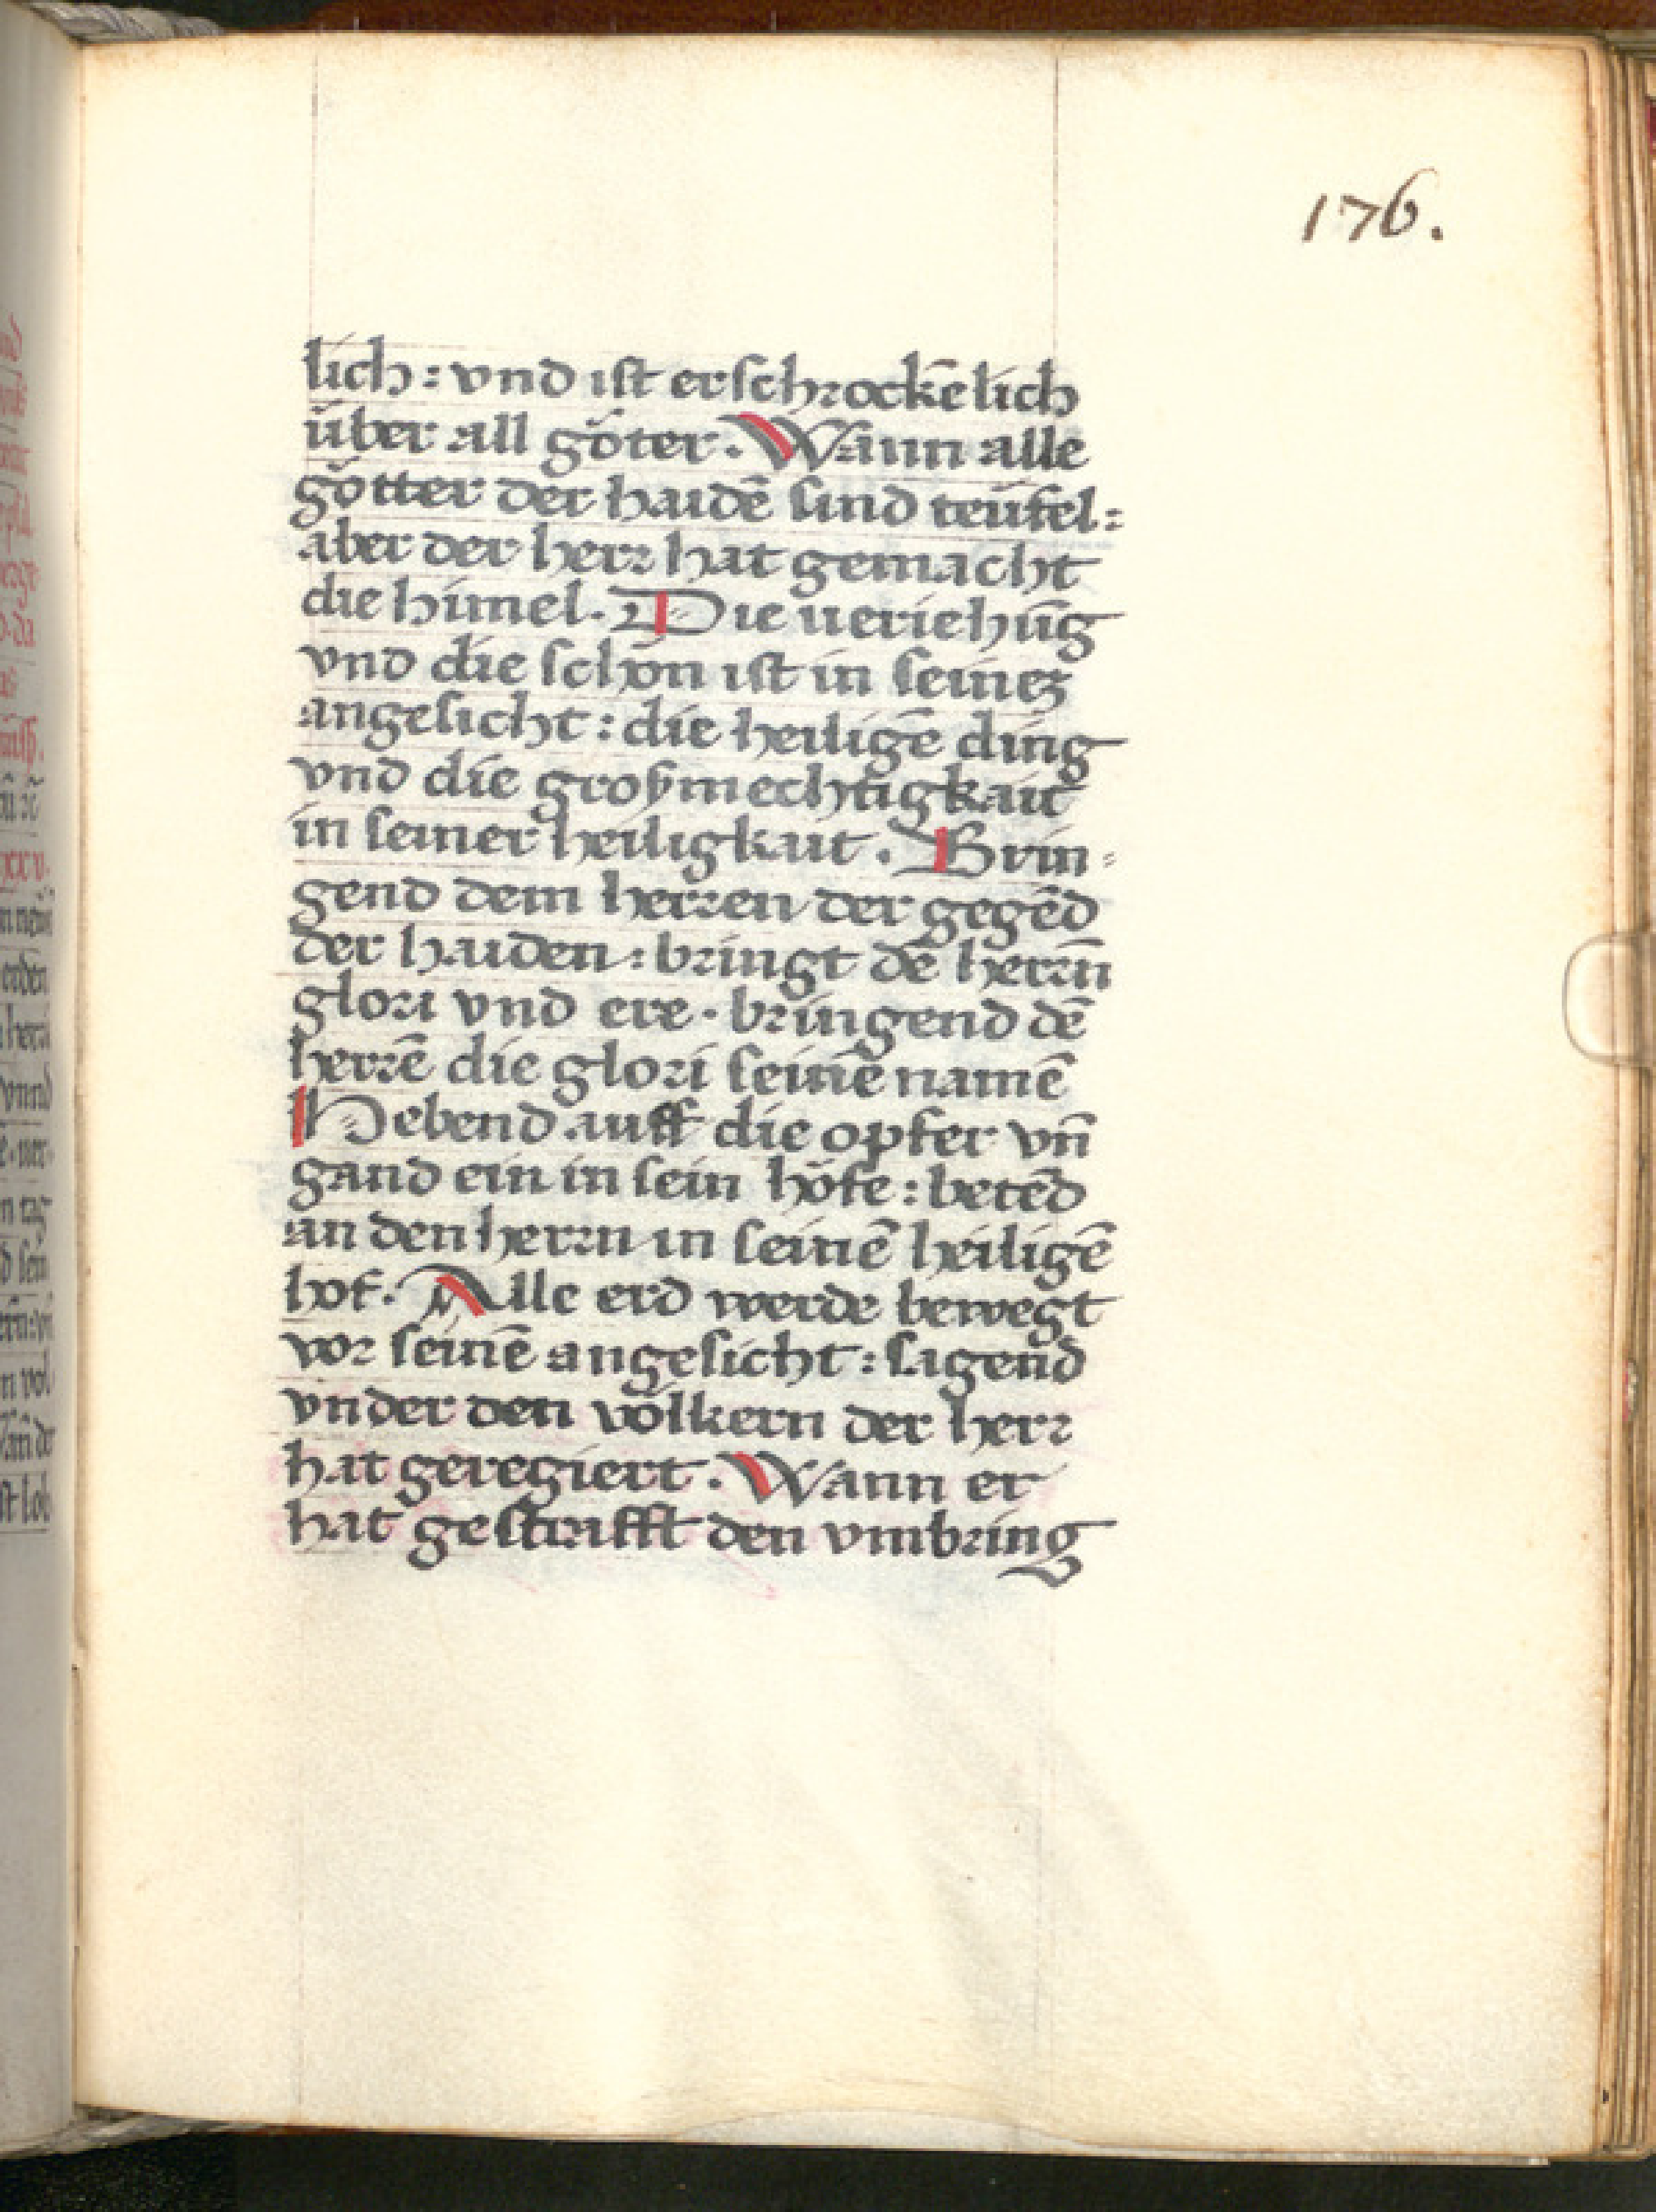 176.
lich : vnd ist erschrockēlich
über all göter. Wann alle
götter der haidē sind teüfel :
aber der herr hat gemacht
die himel. Die veriehūg
vnd die schön ist in seinez
angesicht : die heiligē ding
vnd die großmechtigkait
in seiner heiligkait. Brin-
gend dem herren der gegēd
der haiden : bringt dē herrn̄
glori vnd ere. bringend dē
herrē die glori seinē namē
Hebend auff die opfer vn̄
gand ein in sein höfe : betēd
an den herrn in seinē heiligē
hof. Alle erd werde bewegt
vor seinē angesicht : sagend
vnder den völkern der herr
hat geregiert. Wann er
hat gestrafft den vmbring